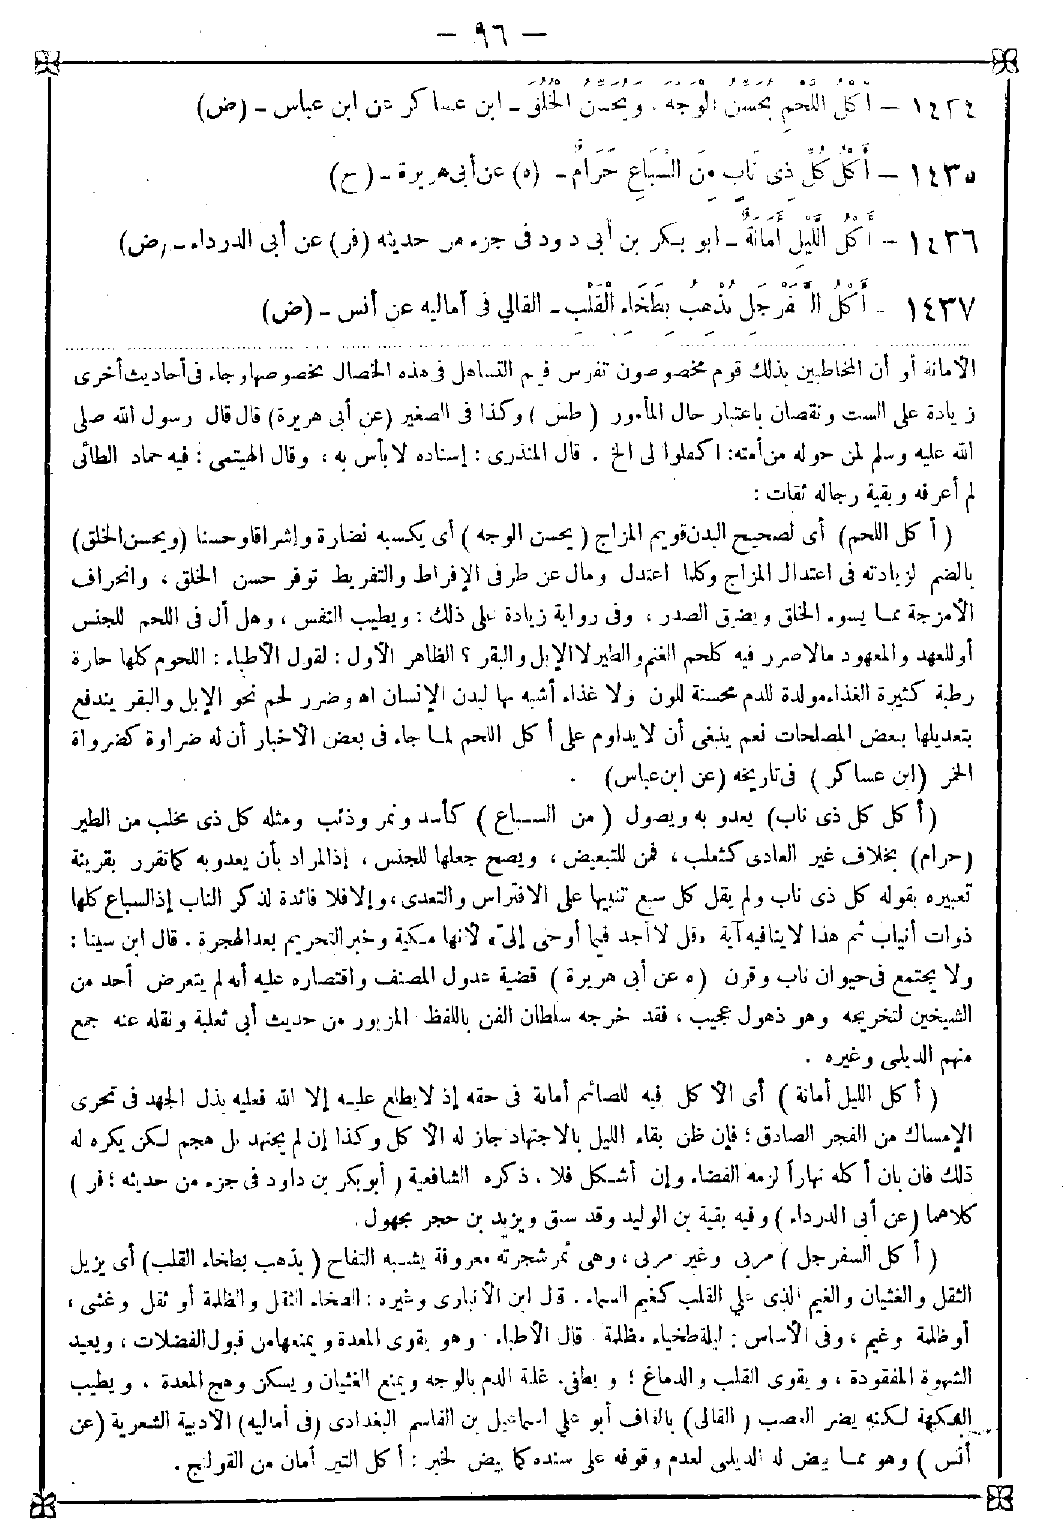 — ٩٦ —
١٤٢٤ — أَكْلُ اللَّحْمِ يُحَسِّنُ الْوَجْهَ . وَيُحَسِّنُ الْخُلُقَ – ابن عساكر عن ابن عباس – (ض)
١٤٣٥ — أَكْلُ كُلِّ ذِى نَابٍ مِنَ السِّبَاعِ حَرَامٌ – (ه) عن أبى هريرة – (ح)
١٤٣٦ – أَكْلُ اللَّيْلِ أَمَانَةٌ – ابو بكر بن أبى دود فى جزء من حديثه (فر) عن أبى الدرداء – (ض)
١٤٣٧ – أَكْلُ السَّفَرْجَلِ يُذْهِبُ بِطَخَاءِ الْقَلْبِ – القالي فى أماليه عن أنس – (ض)
الأمانة أو أن المخاطبين بذلك قوم مخصوصون تفرس فيهم التساهل فى هذه الخصال بخصوصها وجاء فى أحاديث أخرى
زيادة على الست ونقصان باعتبار حال المأمور ( طس ) وكذا فى الصغير (عن أبى هريرة) قال قال رسول الله صلى
الله عليه وسلم لمن حوله من أمته: اكفلوا لى الخ . قال المنذرى : إسناده لا بأس به ، وقال الهيتمى : فيه حماد الطائى
لم أعرفه وبقية رجاله ثقات :
( أكل اللحم) أى لصحيح البدن قويم المزاج ( يحسن الوجه ) أى يكسبه نضارة وإشراقا وحسنا (ويحسن الخلق)
بالضم لزيادته فى اعتدال المزاج وكلما اعتدل ومال عن طرفى الإفراط والتفريط توفر حسن الخلق ، وانحراف
الأمزجة مما يسوء الخلق ويضيق الصدر ، وفى رواية زيادة على ذلك : ويطيب النفس ، وهل أل فى اللحم للجنس
أو للعهد والمعهود مالا ضرر فيه كلحم الغنم والطير لا الإبل والبقر ؟ الظاهر الأول : لقول الأطباء : اللحوم كلها حارة
رطبة كثيرة الغذاء مولدة للدم محسنة للون ولا غذاء أشبه بها لبدن الإنسان اه وضرر لحم نحو الإبل والبقر يندفع
بتعديلها ببعض المصلحات نعم ينبغى أن لا يداوم على أكل اللحم لما جاء فى بعض الأخبار أن له ضراوة كضرواة
الخمر (ابن عساكر ) فى تاريخه (عن ابن عباس) .
(أكل كل ذى ناب) يعدو به ويصول ( من السباع ) كأسد ونمر وذئب ومثله كل ذى مخلب من الطير
(حرام) بخلاف غير العادى كثعلب ، فمن للتبعيض ، ويصح جعلها للجنس ، إذ المراد بأن يعدو به كما تقرر بقرينة
تعبيره بقوله كل ذى ناب ولم يقل كل سبع تنبيها على الافتراس والتعدى ، وإلا فلا فائدة لذكر الناب إذ السباع كلها
ذوات أنياب ثم هذا لا ينافيه آية «قل لا أجد فيما أوحى إلىّ» لأنها مكية وخبر التحريم بعد الهجرة . قال ابن سينا :
ولا يجتمع فى حيوان ناب وقرن (ه عن أبى هريرة ) قضية عدول المصنف واقتصاره عليه أنه لم يتعرض أحد من
الشيخين لتخريجه وهو ذهول عجيب ، فقد خرجه سلطان الفن باللفظ المزبور من حديث أبى ثعلبة ونقله عنه جمع
منهم الديلمى وغيره .
( أكل الليل أمانة ) أى الأكل فيه للصائم أمانة فى حقه إذ لا يطلع عليه إلا الله فعليه بذل الجهد فى تحرى
الإمساك من الفجر الصادق ؛ فإن ظن بقاء الليل بالاجتهاد جاز له الأكل وكذا إن لم يجتهد بل هجم لكن يكره له
ذلك فان بان أكله نهاراً لزمه القضاء وإن أشكل فلا ، ذكره الشافعية ( أبو بكر بن داود فى جزء من حديثه ؛ فر )
كلاهما (عن أبى الدرداء ) وفيه بقية بن الوليد وقد سبق ويزيد بن حجر مجهول .
( أكل السفرجل ) مربى وغير مربى ، وهى ثمر شجرته معروفة يشبه التفاح ( يذهب بطخاء القلب) أى يزيل
الثقل والغثيان والغيم الذى على القلب كغيم السماء . قال ابن الأنبارى وغيره : الطخاء الثقل والظلمة أو ثقل وغشى ،
أو ظلمة وغيم ، وفى الأساس : ليلة طخياء مظلمة قال الأطباء وهو يقوى المعدة ويمنعها من قبول الفضلات ، ويعيد
الشهوة المفقودة ، ويقوى القلب والدماغ ؛ ويطفئ غلة الدم بالوجه ويمنع الغثيان ويسكن وهج المعدة ، ويطيب
النكهة لكنه يضر العصب ( القالى) بالقاف أبو علي اسماعيل بن القاسم البغدادى (فى أماليه) الأدبية الشعرية (عن
أنس ) وهو مما بيض له الديلمى لعدم وقوفه على سنده كما بيض لخبر : أكل التين أمان من القولنج .